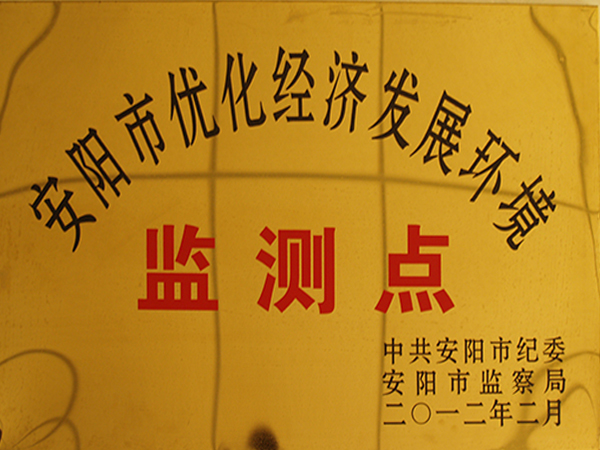 安阳市优化经济发展环境
监测点
中共安阳市纪委
安阳市监察局
二〇一二年二月